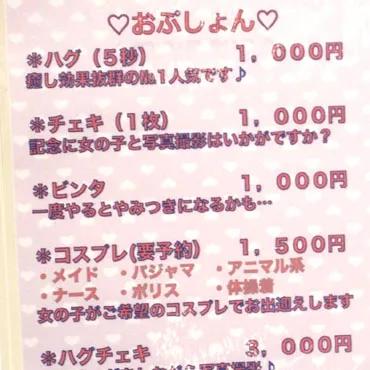 ♡おぷしょん♡
＊ハグ（５秒） １，０００円
癒し効果抜群の№１人気です♪
＊チェキ（１枚） １，０００円
記念に女の子と写真撮影はいかがですか？
＊ビンタ １，０００円
一度やるとやみつきになるかも…
＊コスプレ(要予約) １，５００円
・メイド ・パジャマ ・アニマル系
・ナース ・ポリス ・体操着
女の子がご希望のコスプレでお出迎えします
＊ハグチェキ ３，０００円